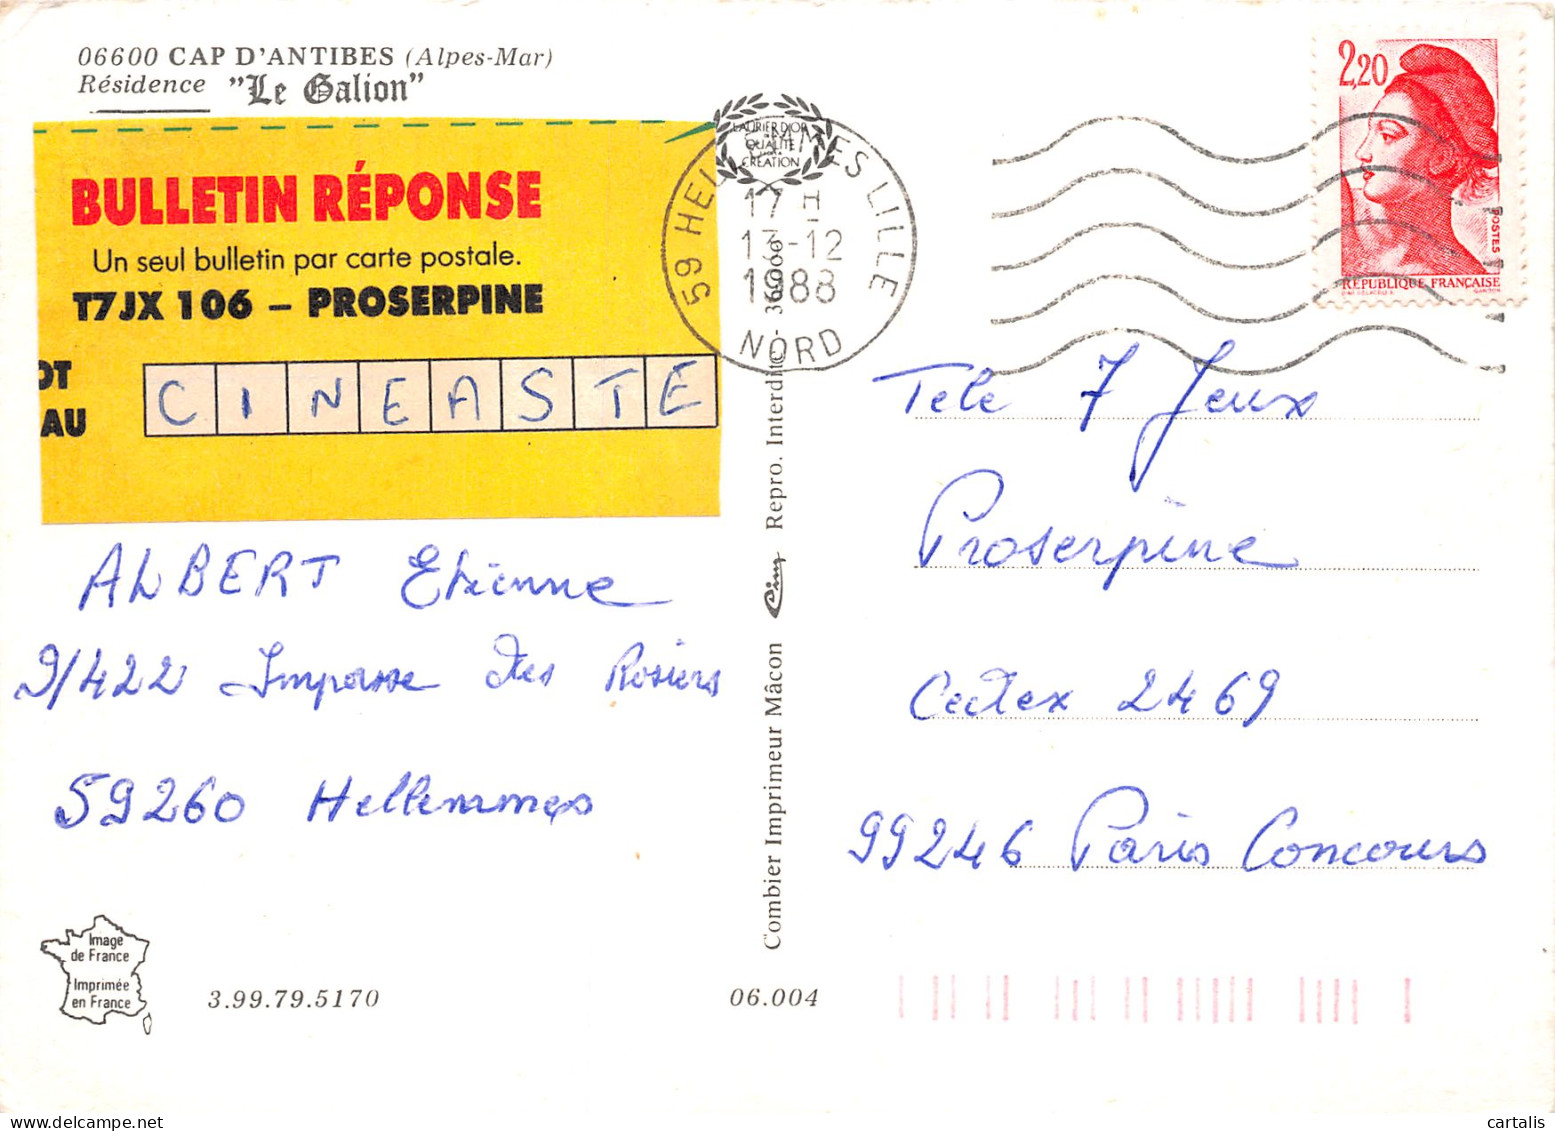 06600 CAP D'ANTIBES (Alpes-Mar)
Résidence "Le Galion"
BULLETIN RÉPONSE
Un seul bulletin par carte postale.
T7JX 106 – PROSERPINE
OT
AU
CINEASTE
ALBERT Etienne
9/422 Impasse des Rosiers
59260 Hellemmes
Image
de France
Imprimée
en France
3.99.79.5170
06.004
Combier Imprimeur Mâcon Cim Repro. Interdite - 36900
LAURIER D'OR
QUALITÉ
CRÉATION
59 HELLEMMES LILLE
17 H
13-12
1988
NORD
2,20
POSTES
RÉPUBLIQUE FRANÇAISE
Tele 7 Jeux
Proserpine
Cedex 2469
99246 Paris Concours
cartalis